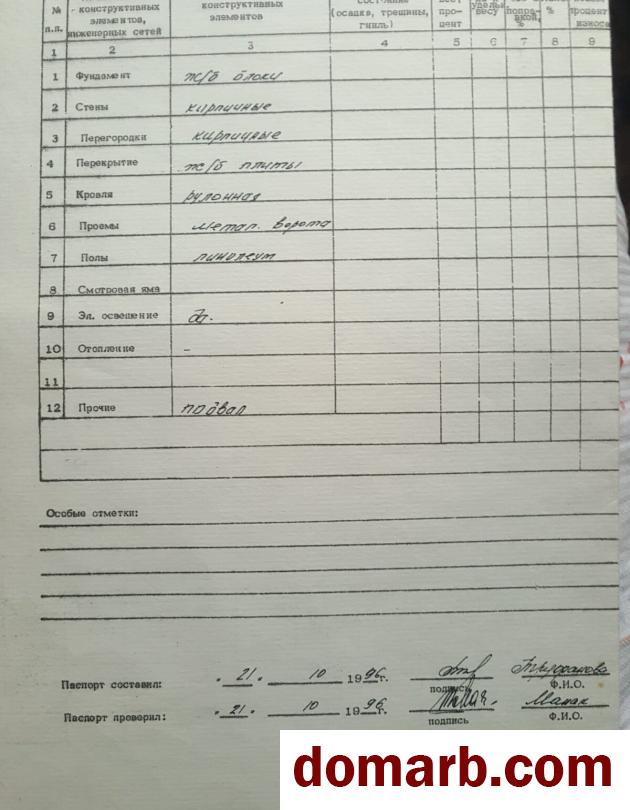 № конструктивных конструктивных (осадка, трещины, про- удельн. попра-
п.п. элементов, элементов гниль) цент весу вкой, % % процент
инженерных сетей % износа
1 2 3 4 5 6 7 8 9
1 Фундамент ж/б блоки
2 Стены кирпичные
3 Перегородки кирпичные
4 Перекрытие ж/б плиты
5 Кровля рулонная
6 Проемы метал. ворота
7 Полы линолеум
8 Смотровая яма
9 Эл. освещение
10 Отопление –
11
12 Прочие подвал
Особые отметки:
Паспорт составил: "21" 10 1996г.
подпись Ф.И.О.
Паспорт проверил: "21" 10 1996 Манак
подпись Ф.И.О.
domarb.com